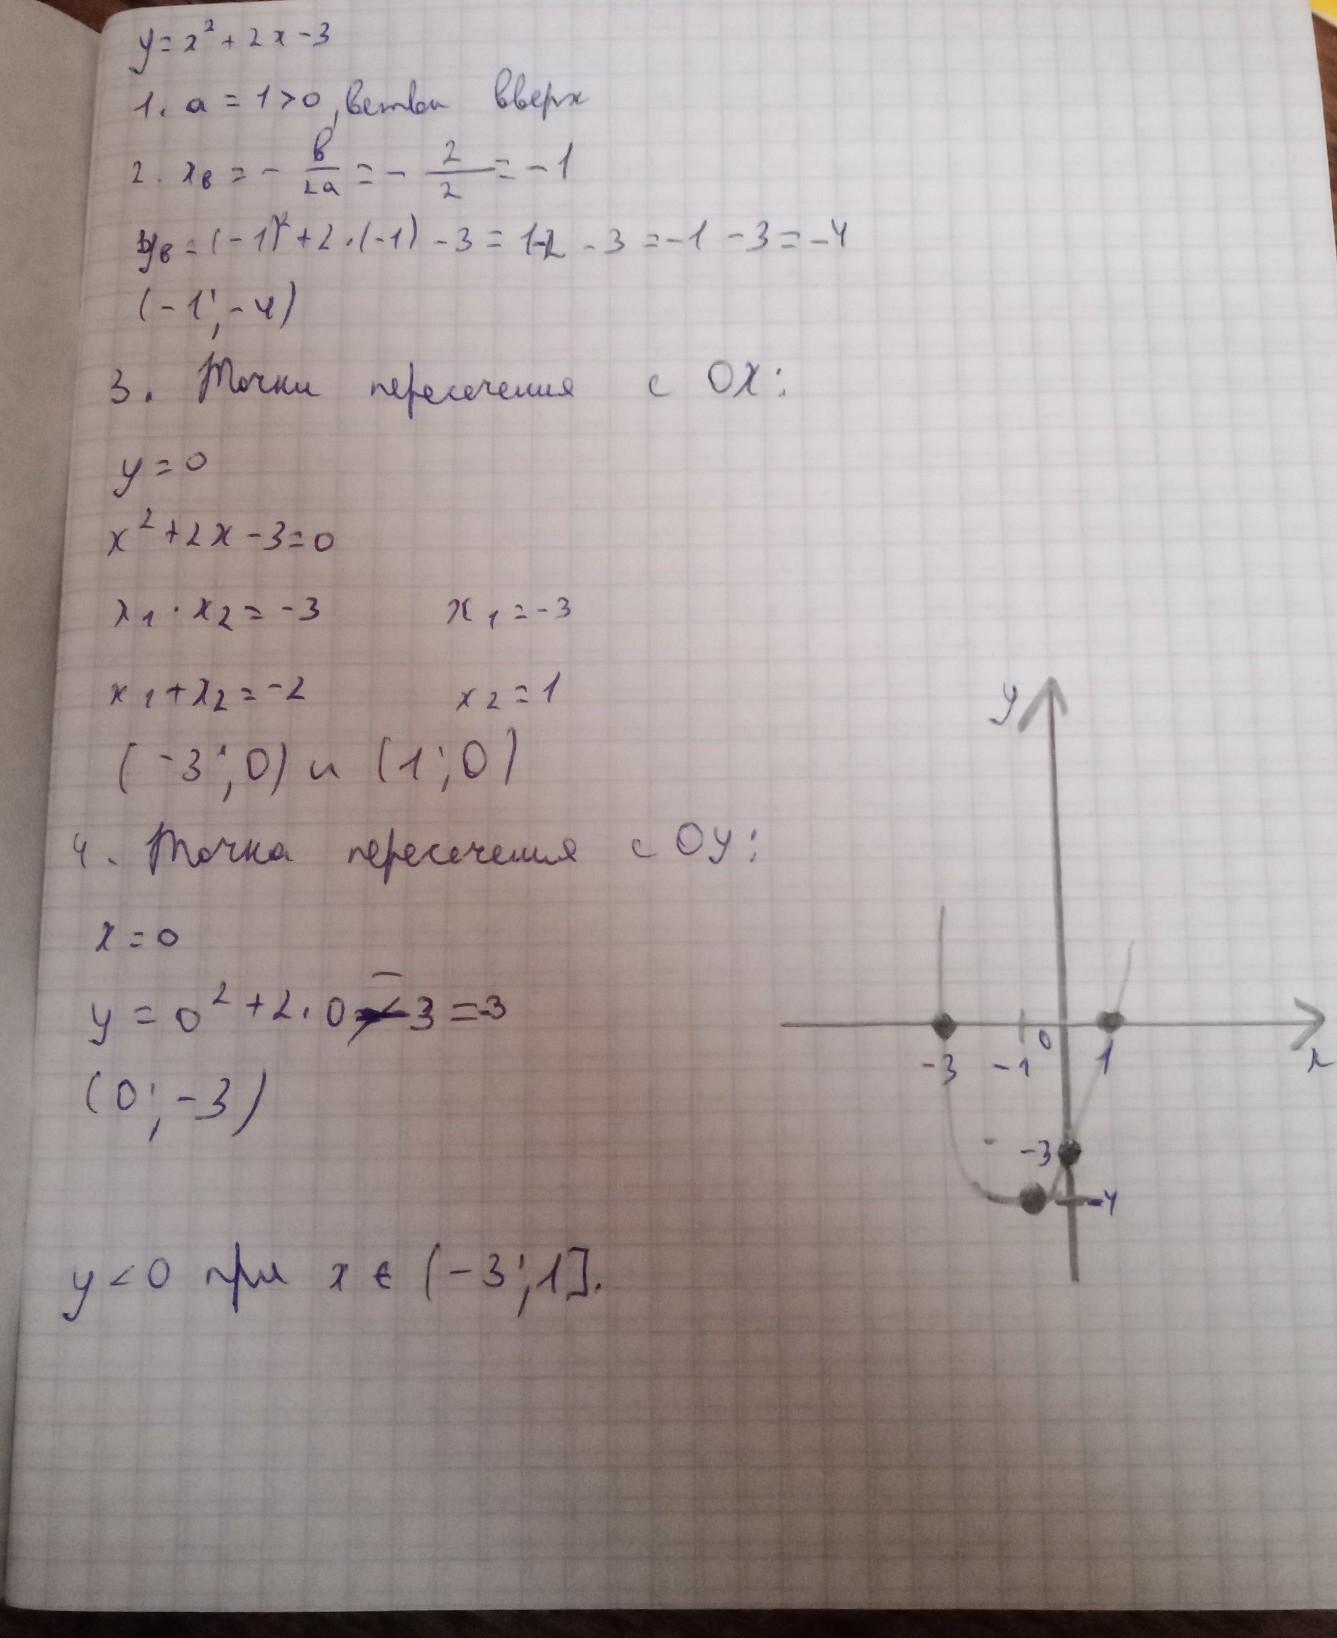 y = x² + 2x - 3
1. a = 1 > 0, ветви вверх
2. xв = - в/2a = - 2/2 = - 1
yв = (-1)² + 2 · (-1) - 3 = 1-2 - 3 = -1 - 3 = -4
(-1; -4)
3. Точки пересечения с OX:
y = 0
x² + 2x - 3 = 0
x₁ · x₂ = -3 x₁ = -3
x₁ + x₂ = -2 x₂ = 1
(-3; 0) и (1; 0)
4. Точка пересечения с Oy:
x = 0
y = 0² + 2 · 0 - 3 = -3
(0; -3)
y < 0 при x ∈ (-3; 1].
y
-3 -1 0 1 x
-3
-4